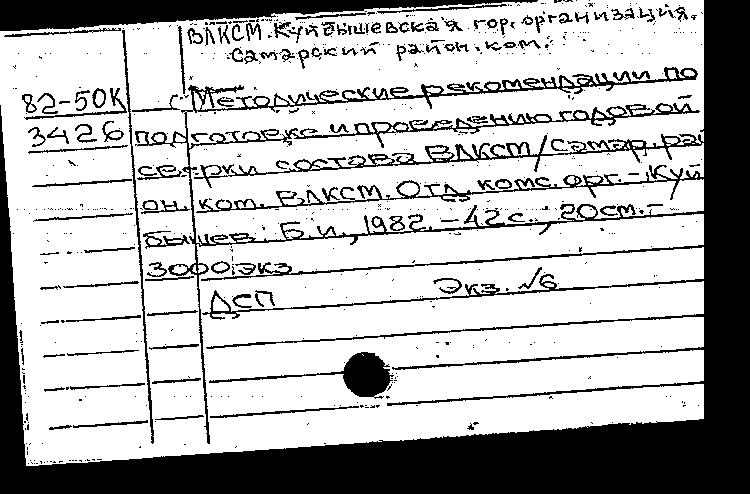 ВЛКСМ. Куйбышевская гор. организация.
Самарский район. ком.
82-50К Методические рекомендации по
3426 подготовке и проведению годовой
сверки состава ВЛКСМ/Самар. рай
он. ком. ВЛКСМ. Отд. комс. орг. - Куй
бышев: Б.и., 1982. - 42 с.; 20 см. -
3000 экз.
ДСП Экз. №6